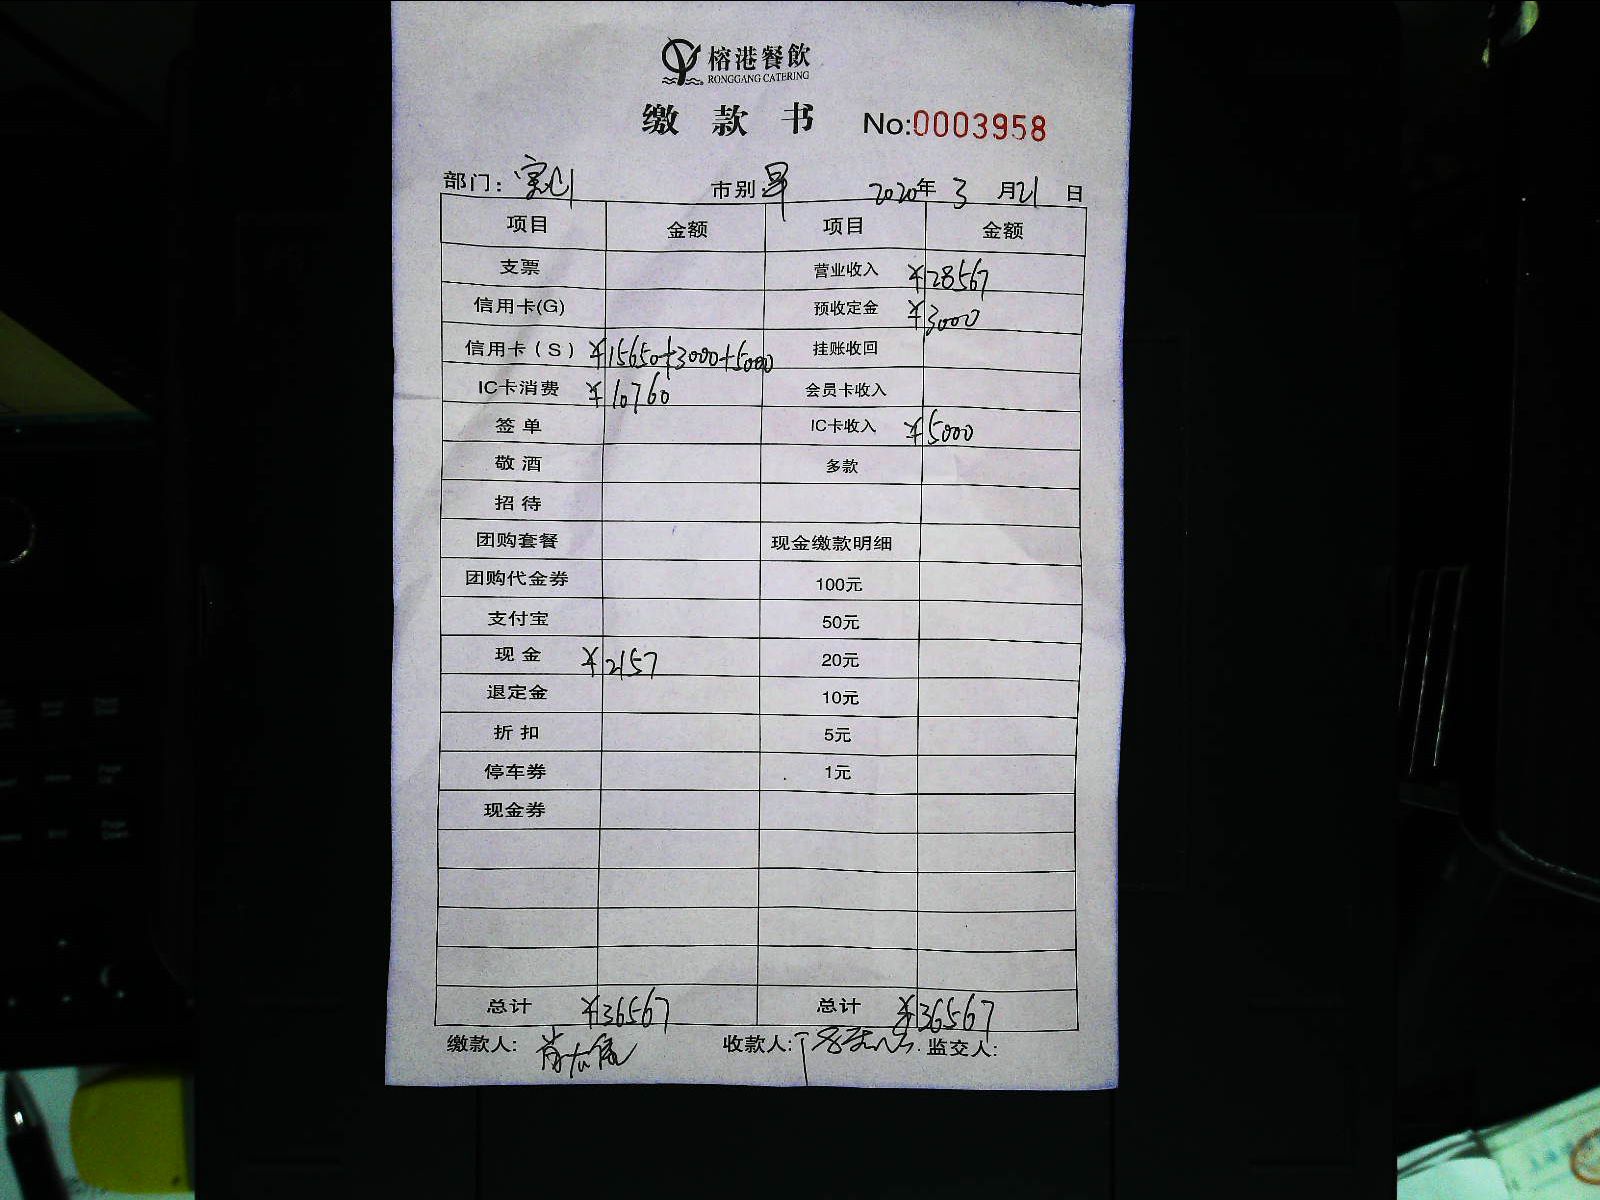 榕港餐飲
RONGGANG CATERING
缴 款 书 No:0003958
部门: 市别: 早 2020年 3 月 21 日
项目 金额 项目 金额
支票 营业收入 ¥28567
信用卡(G) 预收定金 ¥3000
信用卡(S) ¥15650+3000+5000 挂账收回
IC卡消费 ¥10760 会员卡收入
签单 IC卡收入 ¥5000
敬酒 多款
招待
团购套餐 现金缴款明细
团购代金券 100元
支付宝 50元
现金 ¥2157 20元
退定金 10元
折扣 5元
停车券 1元
现金券
总计 ¥36567 总计 ¥36567
缴款人: 收款人: 监交人: